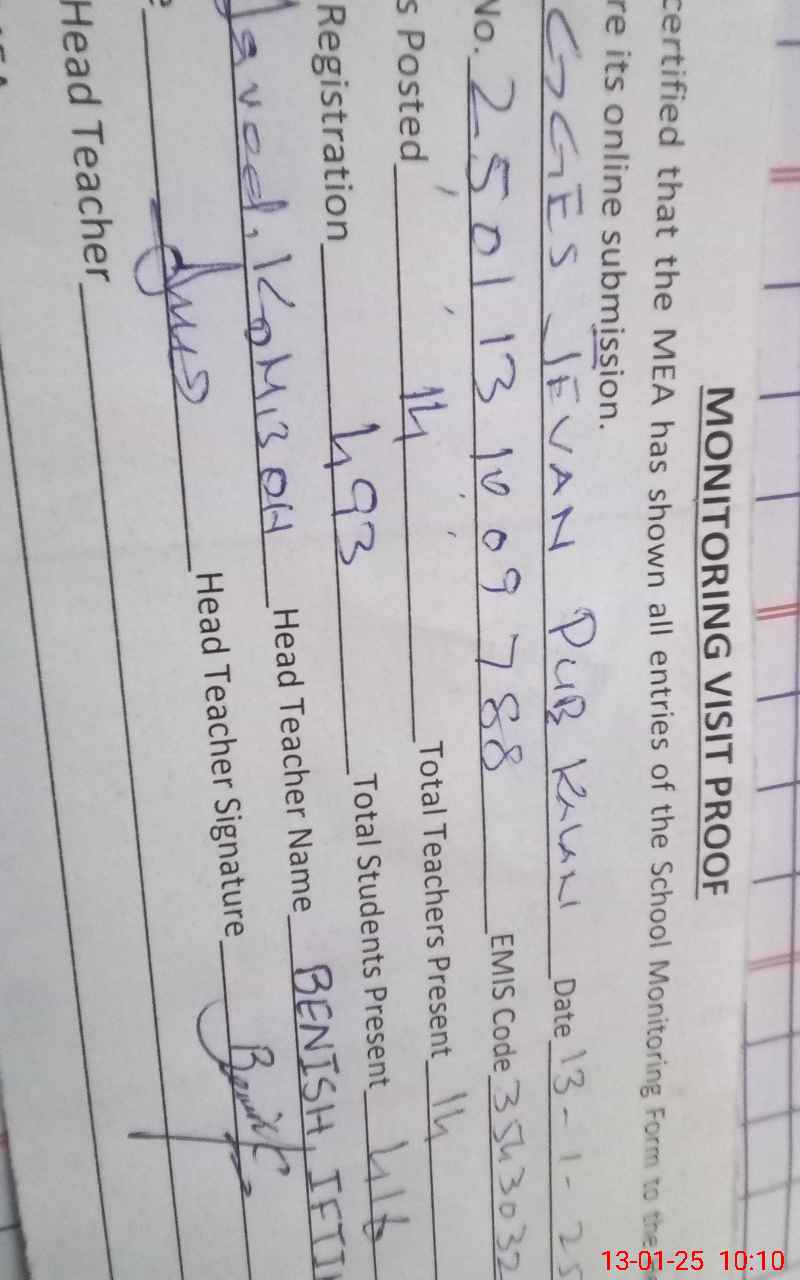 MONITORING VISIT PROOF
certified that the MEA has shown all entries of the School Monitoring Form to the
re its online submission.
GGES JEVAN PUR KALAN Date 13-1-25
No. 2501131009788 EMIS Code 3543032
s Posted 14 Total Teachers Present 14
Registration 493 Total Students Present 416
Head Teacher Name BENISH, IFTI
Head Teacher Signature
Head Teacher
13-01-25 10:10